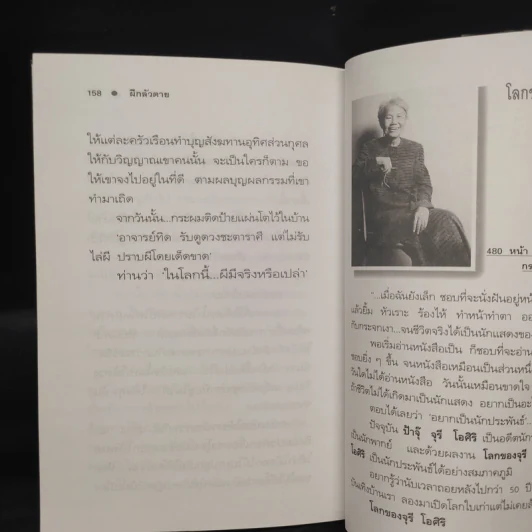 158 ● ผีกลัวตาย
ให้แต่ละครัวเรือนทำบุญสังฆทานอุทิศส่วนกุศล
ให้กับวิญญาณเขาคนนั้น จะเป็นใครก็ตาม ขอ
ให้เขาจงไปอยู่ในที่ดี ตามผลบุญผลกรรมที่เขา
ทำมาเถิด
จากวันนั้น...กระผมติดป้ายแผ่นโตไว้ในบ้าน
'อาจารย์ทิด รับดูดวงชะตาราศี แต่ไม่รับ
ไล่ผี ปราบผีโดยเด็ดขาด'
ท่านว่า 'ในโลกนี้...ผีมีจริงหรือเปล่า'
โลกข
480 หน้า
กร
"...เมื่อฉันยังเล็ก ชอบที่จะนั่งฝันอยู่หน้
แล้วยิ้ม หัวเราะ ร้องไห้ ทำหน้าทำตา ออ
กับกระจกเงา...จนชีวิตจริงได้เป็นนักแสดงของ
พอเริ่มอ่านหนังสือเป็น ก็ชอบที่จะอ่าน
ชอบยิ่ง ๆ ขึ้น จนหนังสือเหมือนเป็นส่วนหนึ่
วันใดไม่ได้อ่านหนังสือ วันนั้นเหมือนขาดใจ
ถ้าชีวิตไม่ได้เกิดมาเป็นนักแสดง อยากเป็นอะ
ตอบได้เลยว่า 'อยากเป็นนักประพันธ์'...
ปัจจุบัน ป้าจุ๊ จุรี โอศิริ เป็นอดีตนัก
เป็นนักพากย์ และด้วยผลงาน โลกของจุรี
โอศิริ เป็นนักประพันธ์ได้อย่างสมภาคภูมิ
อยากรู้ว่านับเวลาถอยหลังไปกว่า 50 ปี
บันเทิงบ้านเรา ลองมาเปิดโลกใบเก่าแต่ไม่เคย
โลกของจุรี โอศิริ